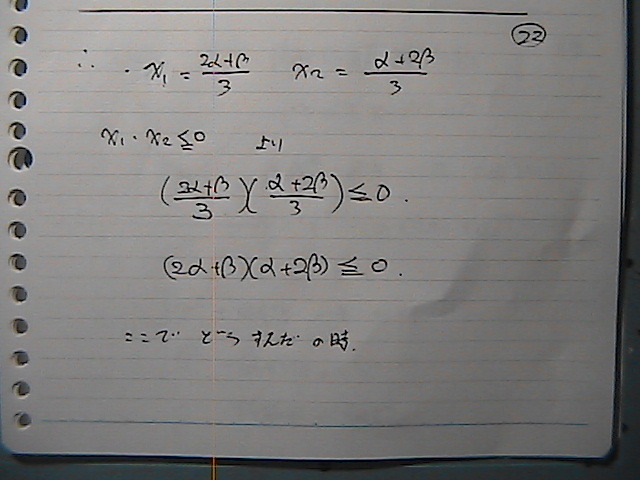 22
∴ · x₁ = (2α+β)/3 x₂ = (α+2β)/3
x₁ · x₂ ≦ 0 より
((2α+β)/3)((α+2β)/3) ≦ 0 .
(2α+β)(α+2β) ≦ 0 .
ここで どうすんだ の時.